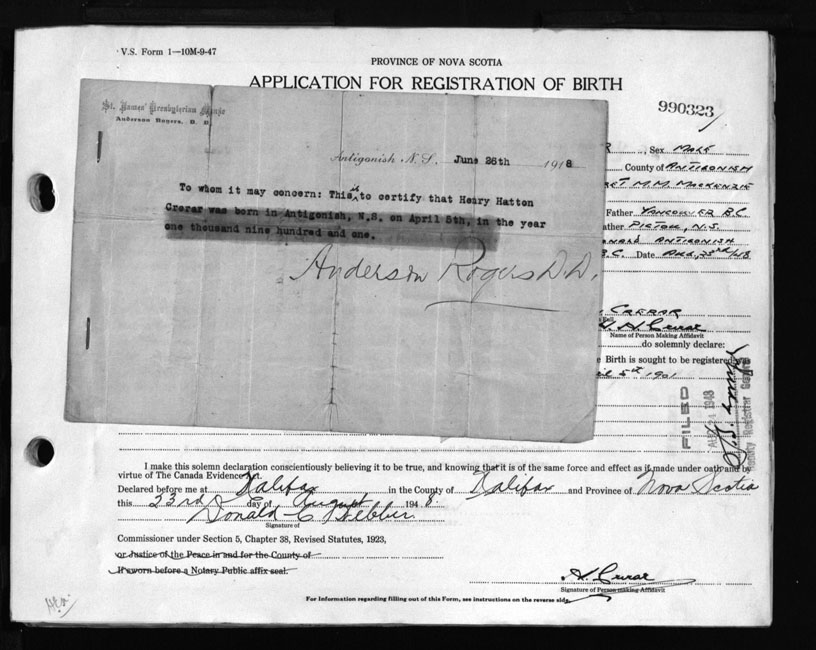 V.S. Form 1—10M-9-47
PROVINCE OF NOVA SCOTIA
APPLICATION FOR REGISTRATION OF BIRTH
990323
St. James' Presbyterian Manse
Anderson Rogers, D. D.
Antigonish N.S. June 26th 1918
To whom it may concern: This is to certify that Henry Hatton
Crerar was born in Antigonish, N.S. on April 5th, in the year
one thousand nine hundred and one.
Anderson Rogers D.D.
R, Sex MALE
County of ANTIGONISH
RET M.M. MACKENZIE
Father VANCOUVER B.C.
ather PICTOU, N.S.
ANTIGONISH
B.C. Date AUG. 23rd/48
CRERAR
H. H. Crerar
Name of Person Making Affidavit
do solemnly declare:
e Birth is sought to be registered was
il 5th 1901
FILED
24 1948
I make this solemn declaration conscientiously believing it to be true, and knowing that it is of the same force and effect as if made under oath and by
virtue of The Canada Evidence Act.
Declared before me at Halifax in the County of Halifax and Province of Nova Scotia
this 23rd day of August 1948.
Donald C
Signature of
Commissioner under Section 5, Chapter 38, Revised Statutes, 1923,
or Justice of the Peace in and for the County of
If sworn before a Notary Public affix seal.
H. Crerar
Signature of Person making Affidavit
For Information regarding filling out of this Form, see instructions on the reverse side.